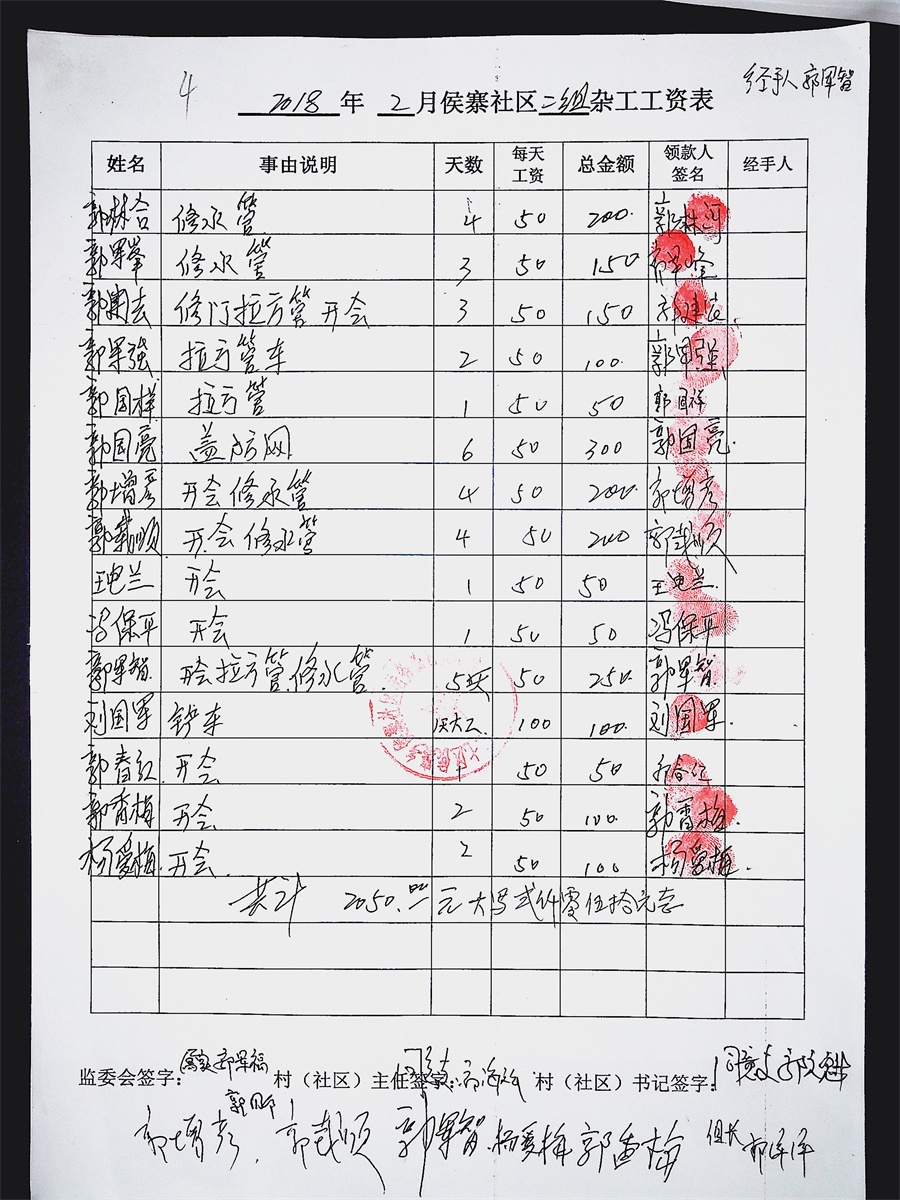 4
经手人 郭军智
2018 年 2 月侯寨社区二组杂工工资表
姓名 事由说明 天数 每天工资 总金额 领款人签名 经手人
郭林合 修水管 4 50 200. 郭林河
郭军峰 修水管 3 50 150
修门拉方管 开会 3 50 150
郭军强 拉方管车 2 50 100. 郭军强
郭国祥 拉方管 1 50 50 郭国祥
郭国亮 盖防网 6 50 300 郭国亮.
郭增彦 开会修水管 4 50 200. 郭增彦
郭栽顺 开会修水管 4 50 200 郭栽顺
开会 1 50 50
冯保平 开会 1 50 50 冯保平
郭军智. 开会拉方管.修水管. 5 50 250. 郭军智.
刘国军 铲车 100 100. 刘国军.
郭春红 开会 1 50 50
郭香梅 开会 2 50 100. 郭香梅.
杨爱梅. 开会. 2 50 100 杨爱梅.
共计 2050.00元 大写贰仟零伍拾元整
监委会签字: 郭军福 村（社区）主任签字: 村（社区）书记签字: 同意支
郭增彦. 郭栽顺 郭军智. 杨爱梅 郭香梅 组长